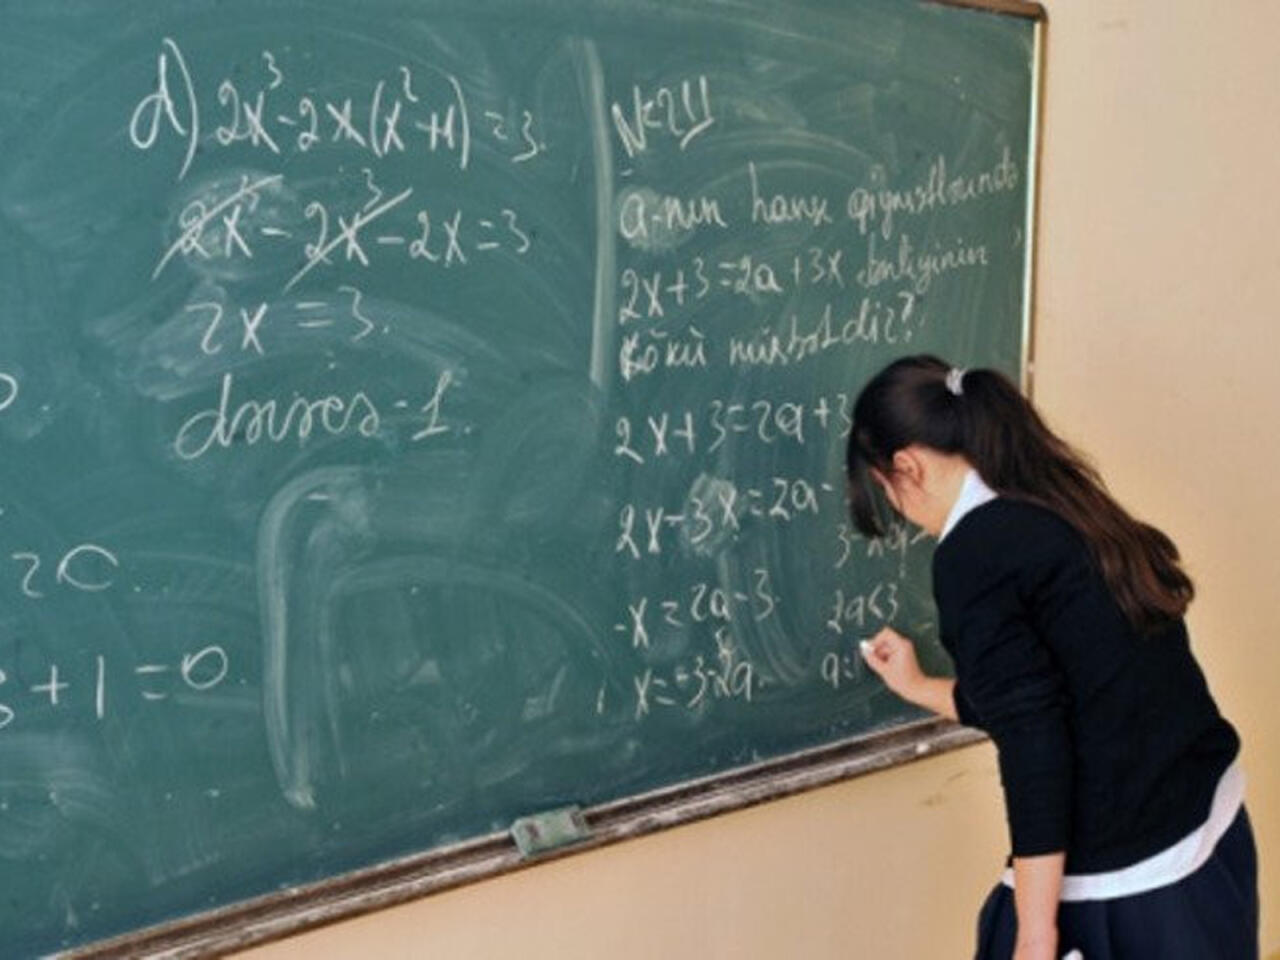 d) 2x³-2x(x²+1)=3.
2x³-2x³-2x=3
2x=3.
=0.
3+1=0.
a-nın hansı qiymətlərində
2x+3=2a+3x tənliyinin
kökü müsbətdir?
2x+3=2a+3
2x-3x=2a-
-x=2a-3.
x=3-2a.
2a<3
a